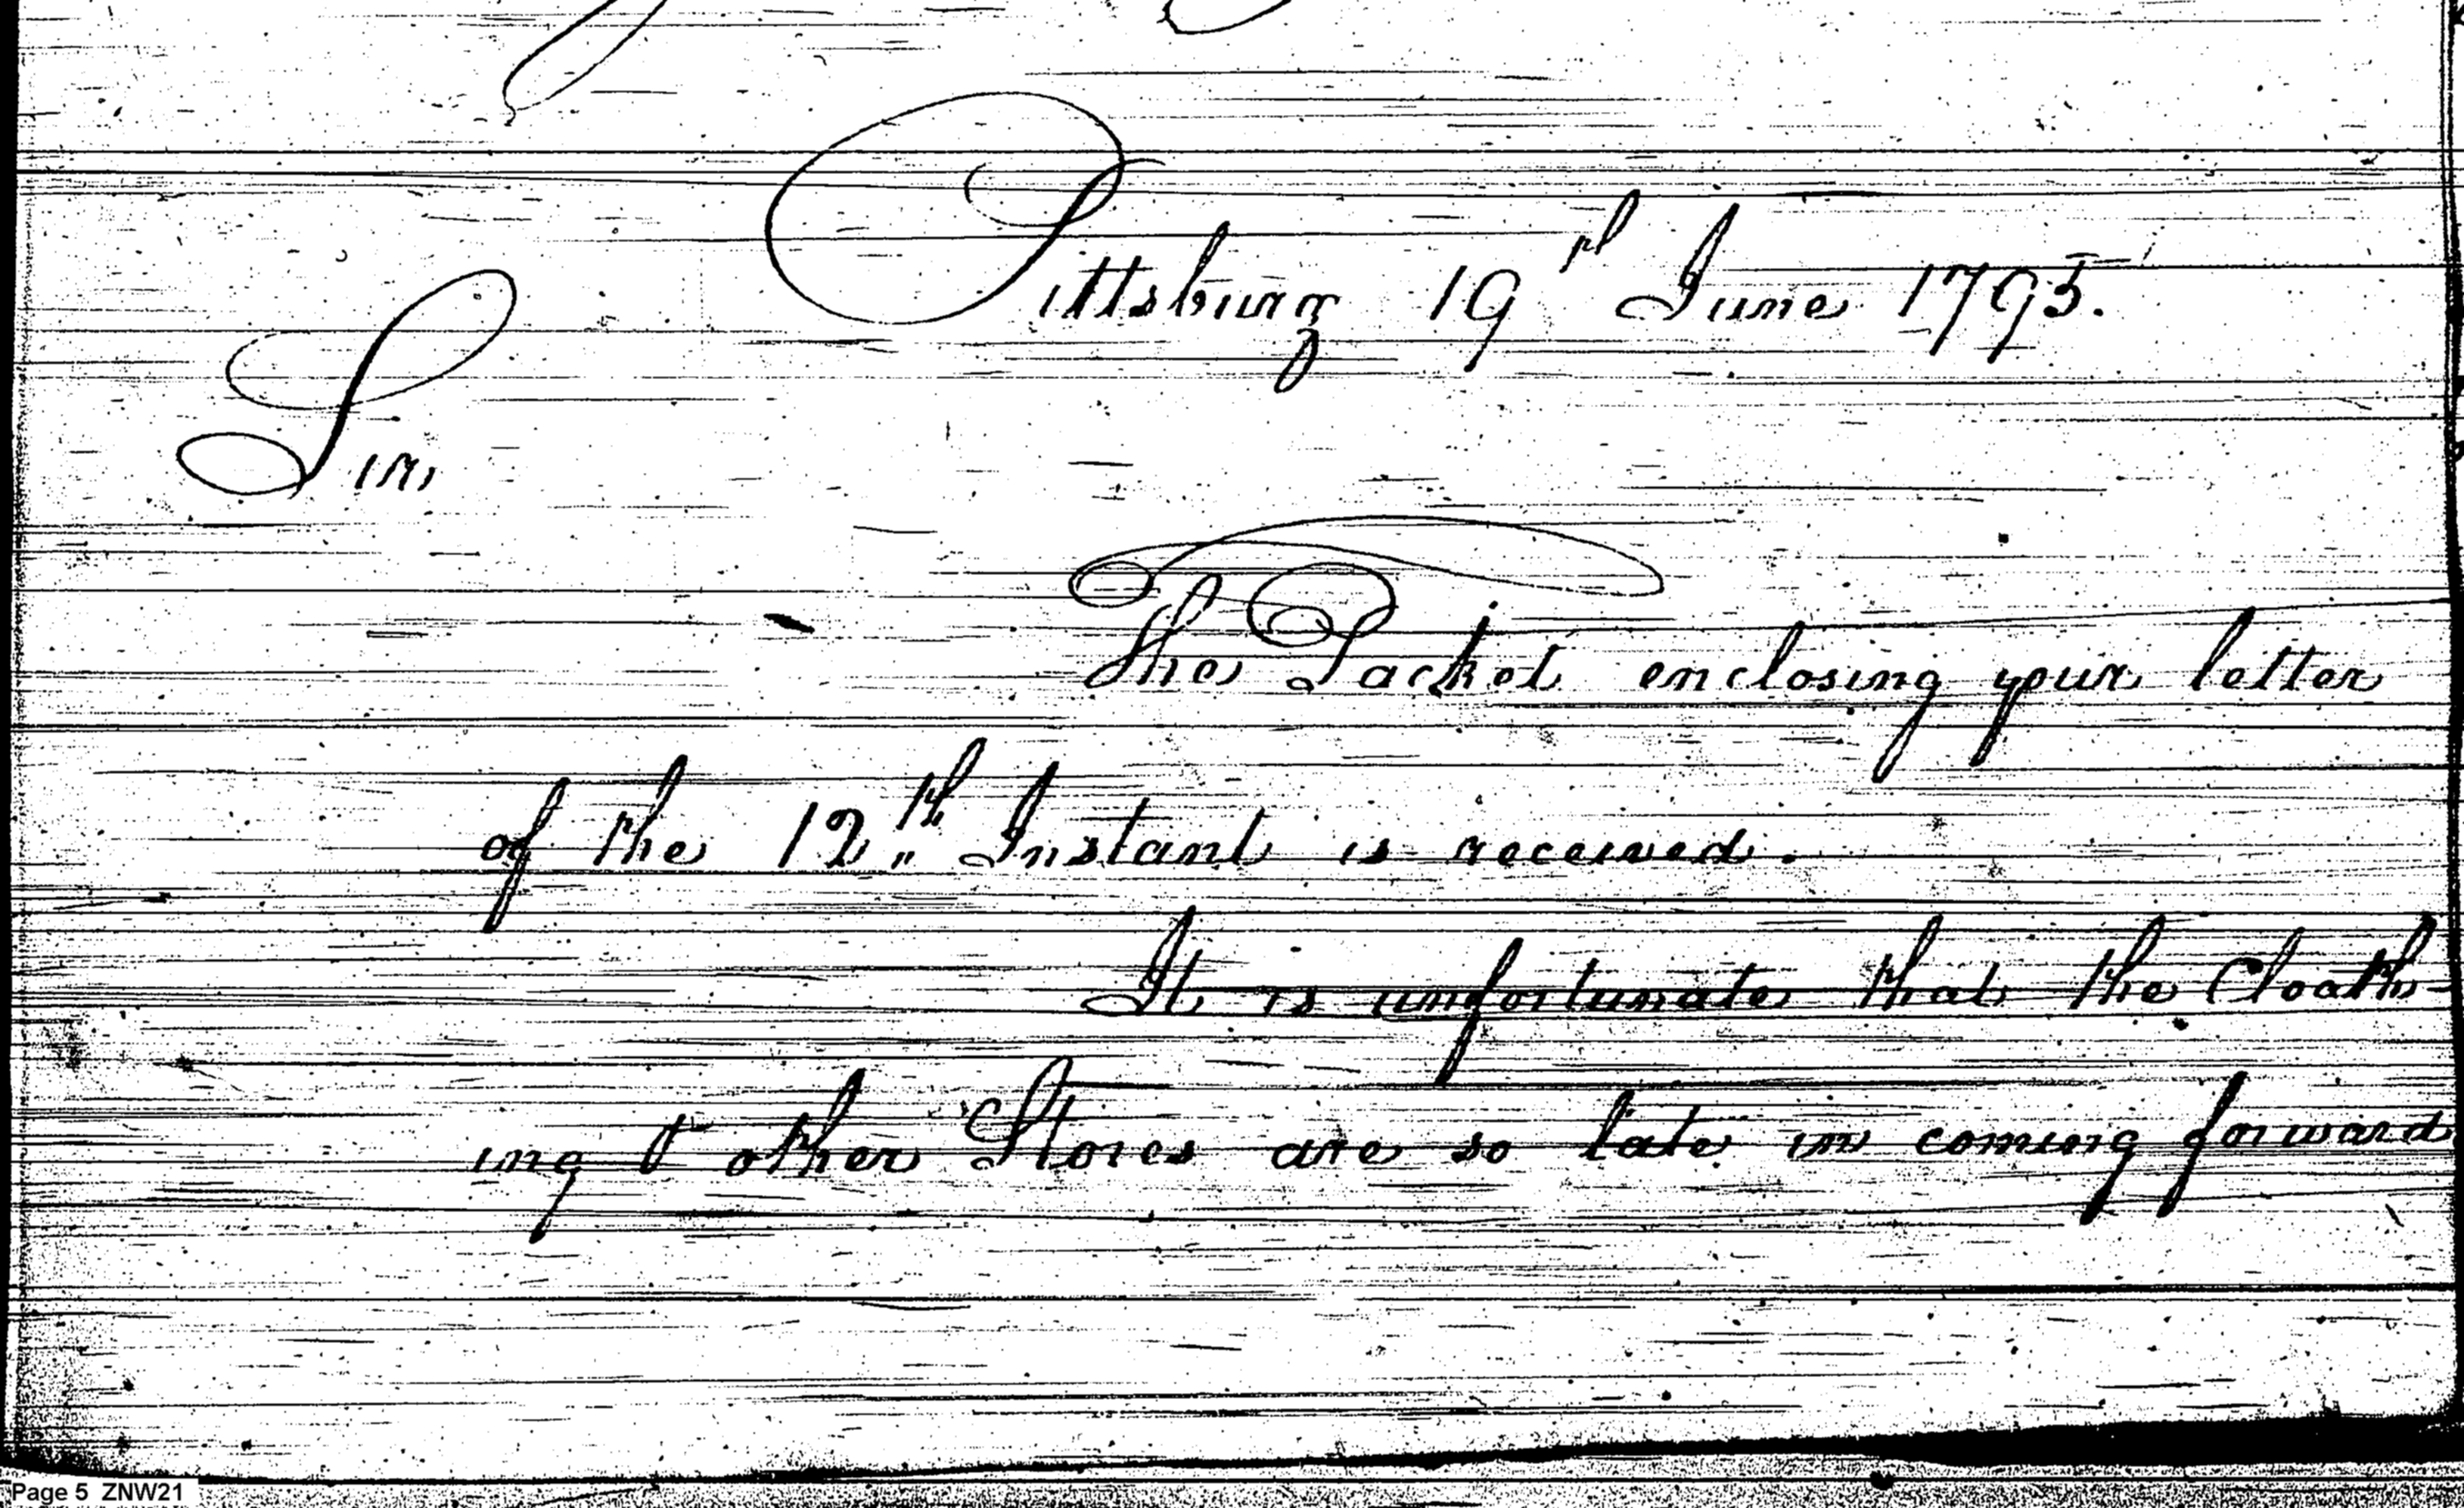 Pittsburg 19th June 1795.
Sir,
The Packet enclosing your letter
of the 12th Instant is received.
It is unfortunate that the Cloath-
ing & other Stores are so late in coming forward
Page 5 ZNW21